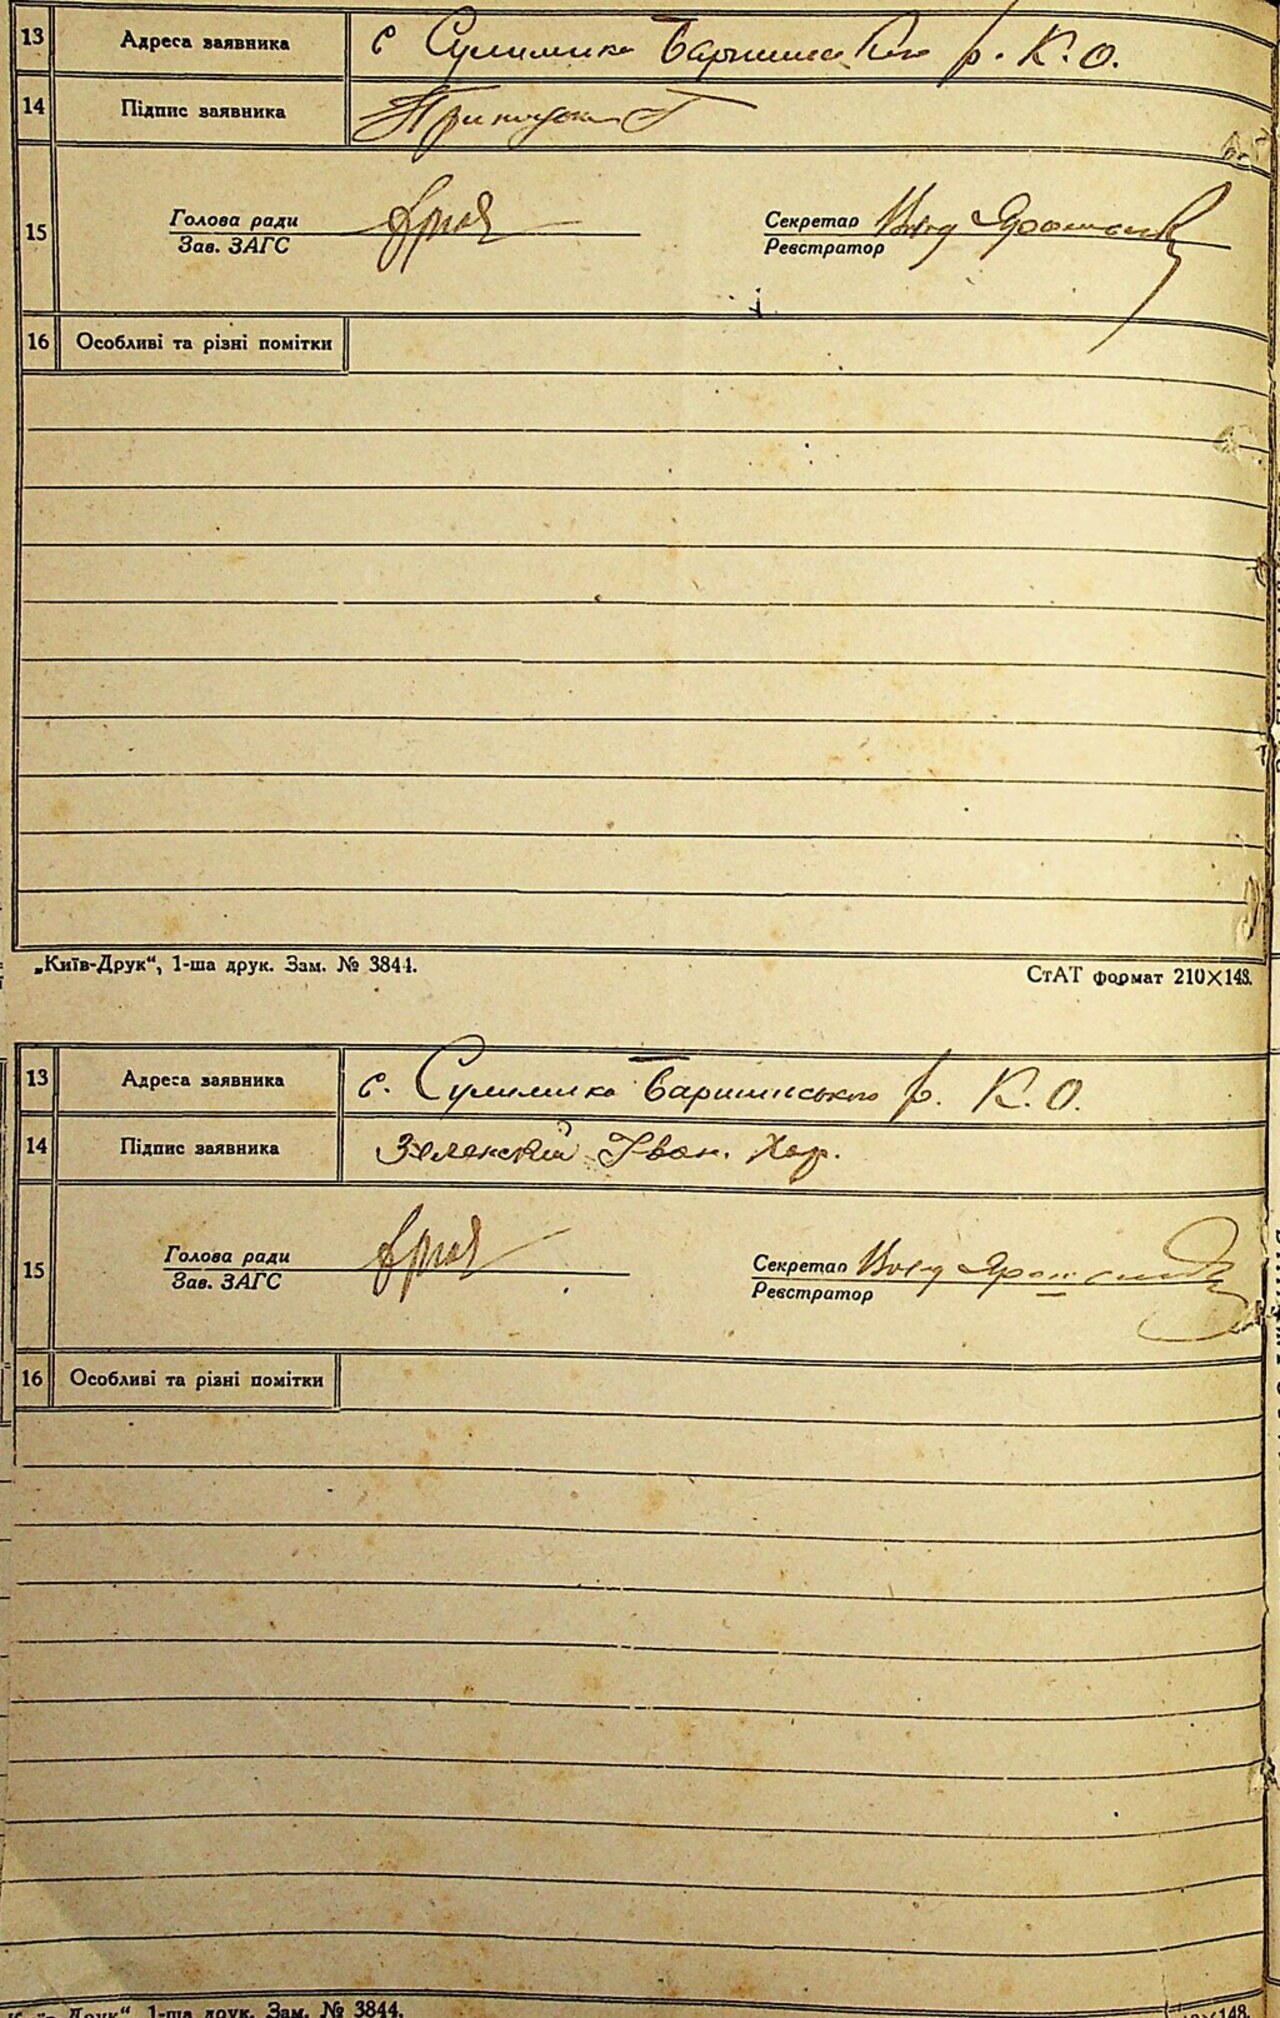 13 Адреса заявника с Сулимика Баришивського р. К. О.
14 Підпис заявника
15 Голова ради Секретар
Зав. ЗАГС Реєстратор
16 Особливі та різні помітки
„Київ-Друк“, 1-ша друк. Зам. № 3844. СтАТ формат 210×148.
13 Адреса заявника с. Сулимика Баришинського р. К. О.
14 Підпис заявника Зеленский Іван. Хар.
15 Голова ради Секретар
Зав. ЗАГС Реєстратор
16 Особливі та різні помітки
Друк“, 1-ша друк. Зам. № 3844. ×148.